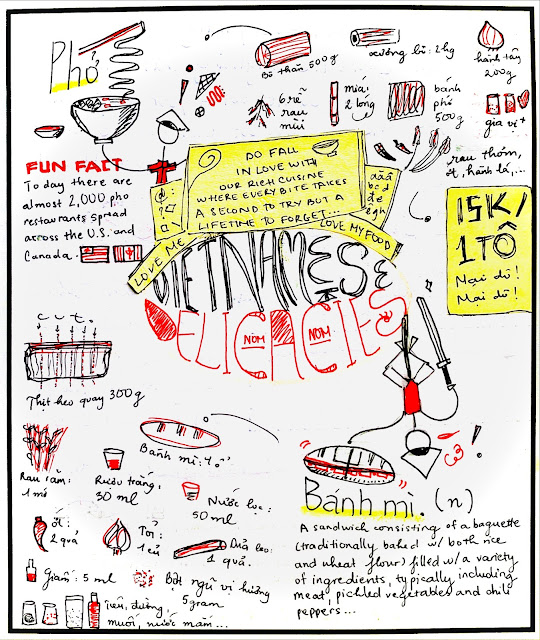 Phở
Bò thăn 500g
xương bò: 2kg
hành tây
200g
6 rễ
rau
mùi
mía,
2 lóng
bánh
phở
500g
gia vị +
rau thơm,
ớt, hành lá,...
FUN FACT
To day there are
almost 2,000 pho
restaurants spread
across the U.S. and
Canada.
DO FALL
IN LOVE WITH
OUR RICH CUISINE
WHERE EVERY BITE TAKES
A SECOND TO TRY BUT A
LIFETIME TO FORGET...
LOVE ME
LOVE MY FOOD
aăâ
bcd
đe
êgh
15K/
1TÔ
Mại dô!
Mại dô!
VIETNAMESE
DELICACIES
NOM NOM
cut.
Thịt heo quay 300g
Bánh mì: 1 ổ
Rau răm:
1 mớ
Rượu trắng,
30 ml
Nước lọc:
50ml
ớt:
2 quả
Tỏi:
1 củ
Dưa leo:
1 quả.
Giấm: 5 ml
Bột ngũ vị hương
5gram
Tiêu, đường,
muối, nước mắm...
Bánh mì. (n)
A sandwich consisting of a baguette
(traditionally baked w/ both rice
and wheat flour) filled w/ a variety
of ingredients, typically including
meat, pickled vegetables and chili
peppers...